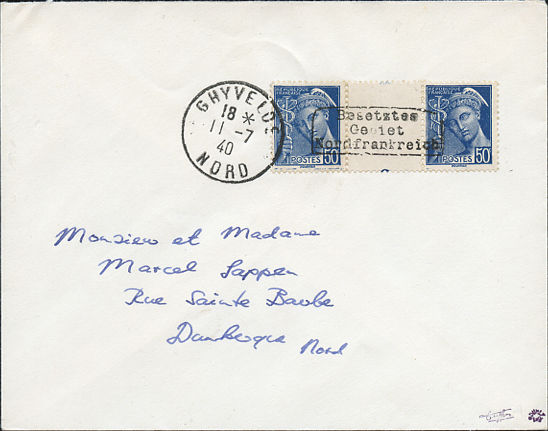 GHYVELDE
18 *
11 -7
40
NORD
REPUBLIQUE FRANÇAISE
POSTES 50
Besetztes
Gebiet
Nordfrankreich
REPUBLIQUE FRANÇAISE
POSTES 50
Monsieur et Madame
Marcel Sappen
Rue Sainte Barbe
Dunkerque Nord